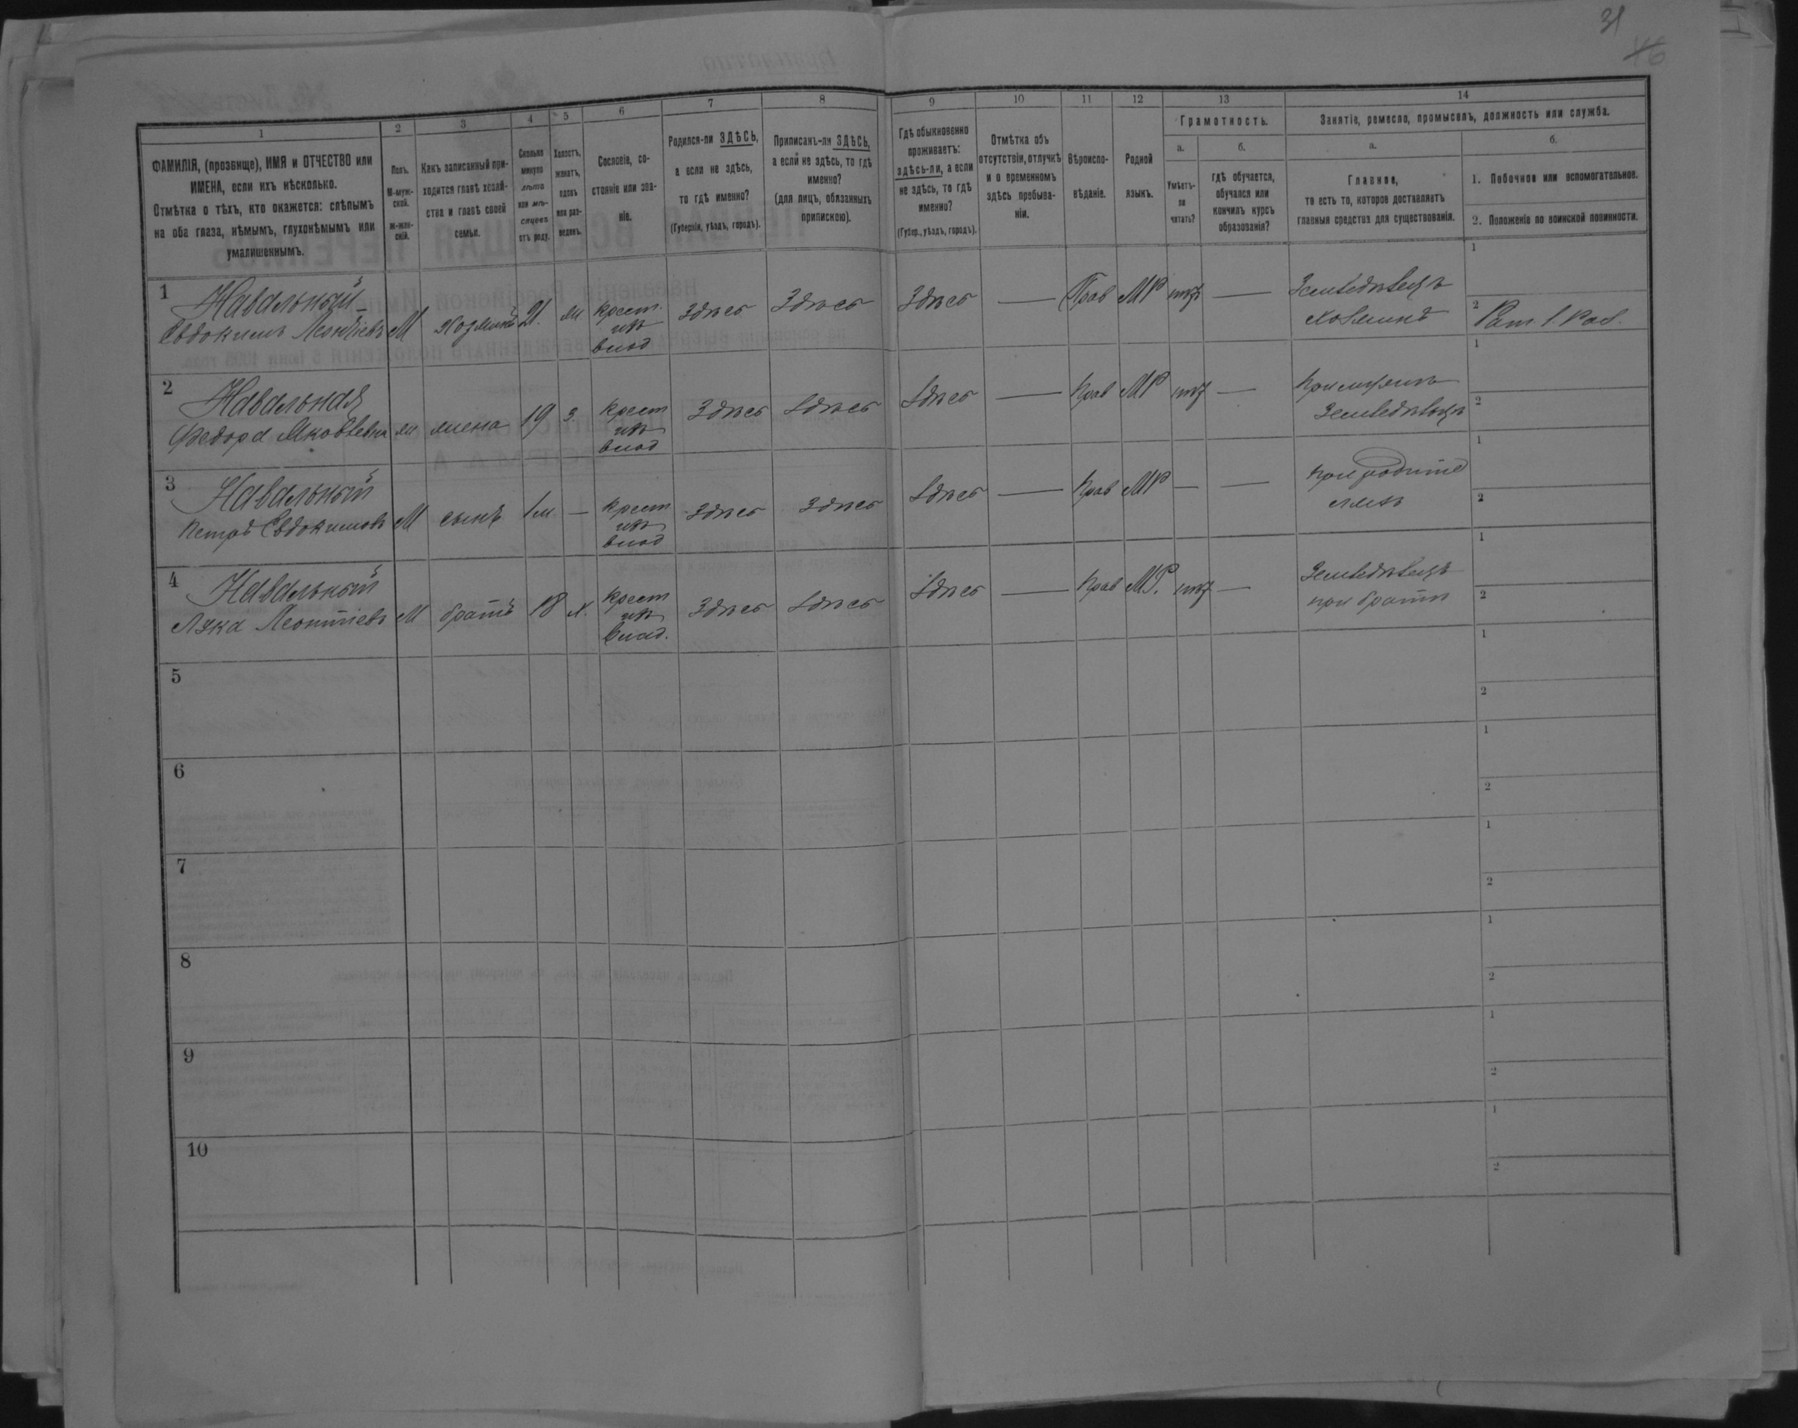 31
46
1
2
3
4
5
6
7
8
9
10
11
12
13
14
ФАМИЛІЯ, (прозвище), ИМЯ и ОТЧЕСТВО или
ИМЕНА, если ихъ нѣсколько.
Отмѣтка о тѣхъ, кто окажется: слѣпымъ
на оба глаза, нѣмымъ, глухонѣмымъ или
умалишеннымъ.
Полъ.
М-муж-
ской.
Ж-жен-
скій.
Какъ записанный при-
ходится главѣ хозяй-
ства и главѣ своей
семьи.
Сколько
минуло
лѣтъ
или мѣ-
сяцевъ
отъ роду.
Холостъ,
женатъ,
вдовъ
или раз-
веденъ.
Сословіе, со-
стояніе или зва-
ніе.
Родился-ли ЗДѢСЬ,
а если не здѣсь,
то гдѣ именно?
(Губернія, уѣздъ, городъ).
Приписанъ-ли ЗДѢСЬ,
а если не здѣсь, то гдѣ
именно?
(для лицъ, обязанныхъ
припискою).
Гдѣ обыкновенно
проживаетъ:
здѣсь-ли, а если
не здѣсь, то гдѣ
именно?
(Губер., уѣздъ, городъ).
Отмѣтка объ
отсутствіи, отлучкѣ
и о временномъ
здѣсь пребыва-
ніи.
Вѣроиспо-
вѣданіе.
Родной
языкъ.
Грамотность.
а.
Умѣетъ-
ли
читать?
б.
гдѣ обучается,
обучался или
кончилъ курсъ
образованія?
Занятіе, ремесло, промыселъ, должность или служба.
а.
Главное,
то есть то, которое доставляетъ
главныя средства для существованія.
б.
1. Побочное или вспомогательное.
2. Положеніе по воинской повинности.
1 Навальный
Евдокимъ Леонтіевъ М хозяинъ 21 ж крест. изъ влад Здѣсь Здѣсь Здѣсь — Прав МР нѣт — Земледѣлецъ хозяинъ
1
2 Рат 1 раз.
2 Навальная
Федора Яковлевна ж жена 19 з крест изъ влад Здѣсь Здѣсь Здѣсь — Прав МР нѣт — при мужѣ земледѣлецъ
1
2
3 Навальный
Петръ Евдокимовъ М сынъ 1м — крест изъ влад Здѣсь Здѣсь Здѣсь — Прав МР — — при родителяхъ
1
2
4 Навальный
Лука Леонтіевъ М братъ 18 х. крест изъ влад. Здѣсь Здѣсь Здѣсь — Прав МР. нѣт — Земледѣлецъ при братѣ
1
2
5
1
2
6
1
2
7
1
2
8
1
2
9
1
2
10
1
2